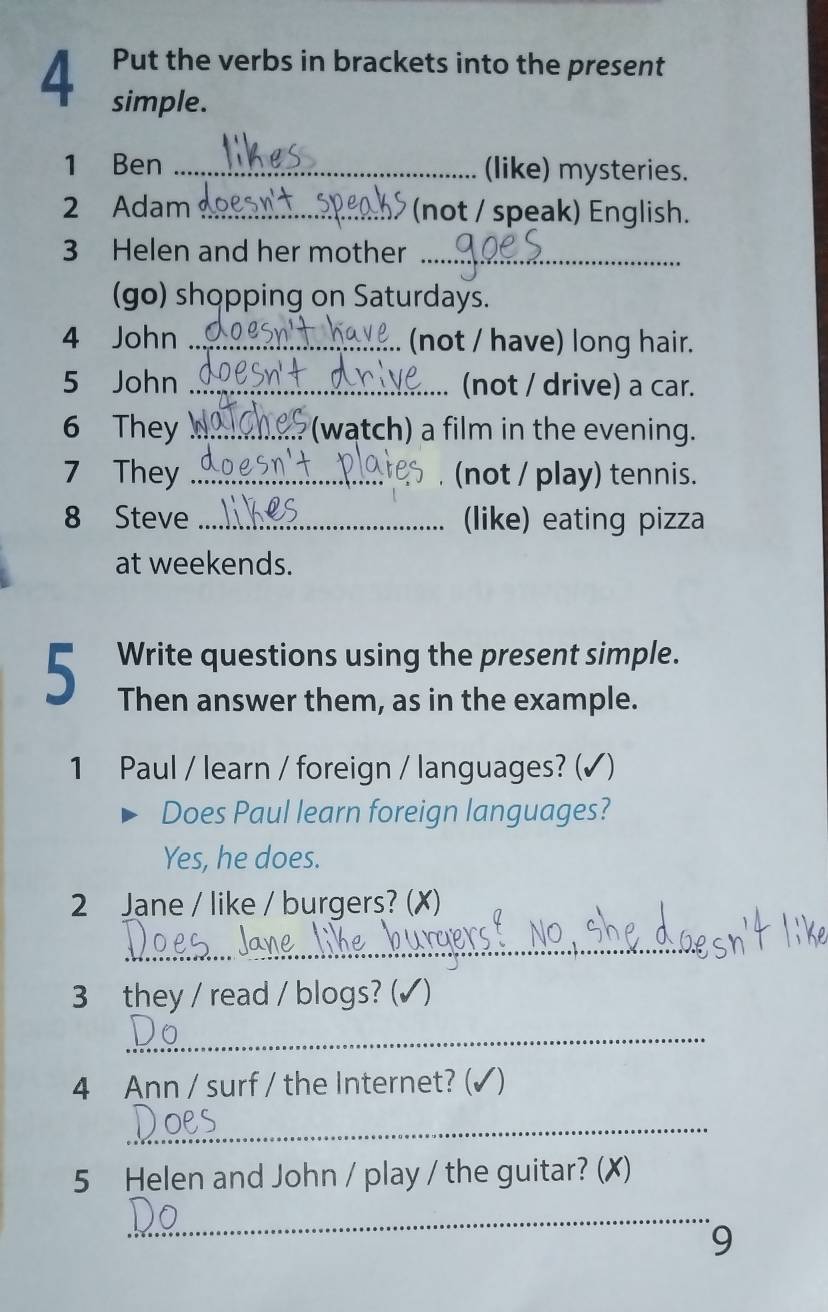 4 Put the verbs in brackets into the present
simple.
1 Ben likes (like) mysteries.
2 Adam doesn't speaks (not / speak) English.
3 Helen and her mother goes
(go) shopping on Saturdays.
4 John doesn't have (not / have) long hair.
5 John doesn't drive (not / drive) a car.
6 They watches (watch) a film in the evening.
7 They doesn't plaies. (not / play) tennis.
8 Steve likes (like) eating pizza
at weekends.
5 Write questions using the present simple.
Then answer them, as in the example.
1 Paul / learn / foreign / languages? (✓)
► Does Paul learn foreign languages?
Yes, he does.
2 Jane / like / burgers? (✗)
Does Jane like burgers? No, she doesn't like
3 they / read / blogs? (✓)
Do
4 Ann / surf / the Internet? (✓)
Does
5 Helen and John / play / the guitar? (✗)
Do
9